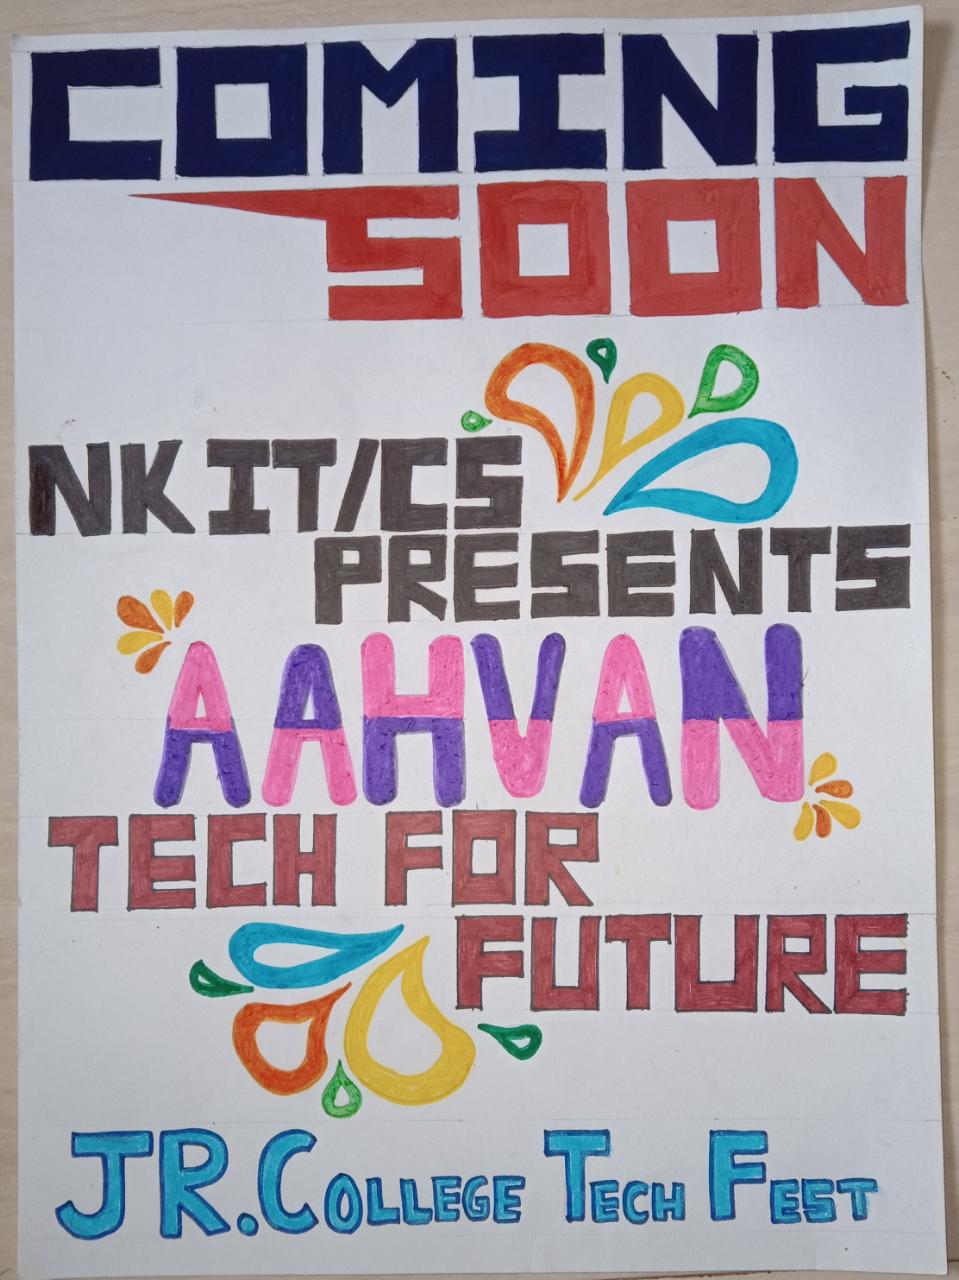 COMING
SOON
NK IT/CS
PRESENTS
AAHVAN
TECH FOR
FUTURE
JR. COLLEGE TECH FEST